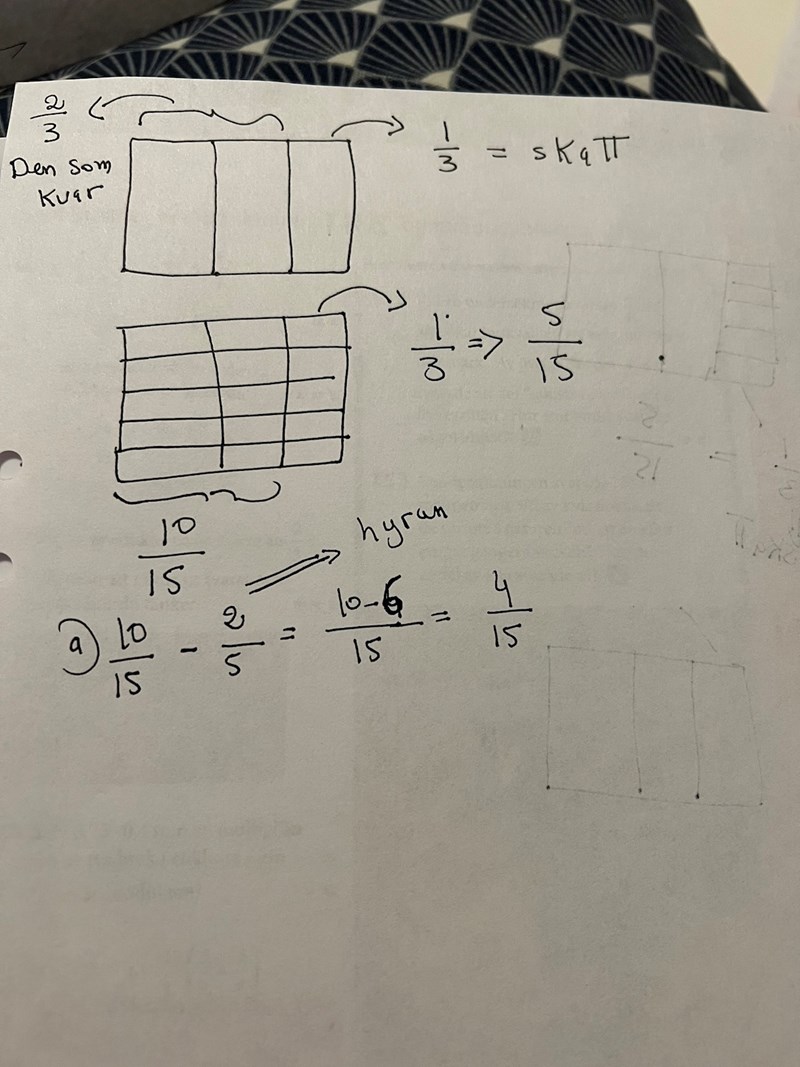 2/3
Den som
kvar
1/3 = skatt
1/3 => 5/15
10/15
hyran
a) 10/15 - 2/5 = 10-6/15 = 4/15